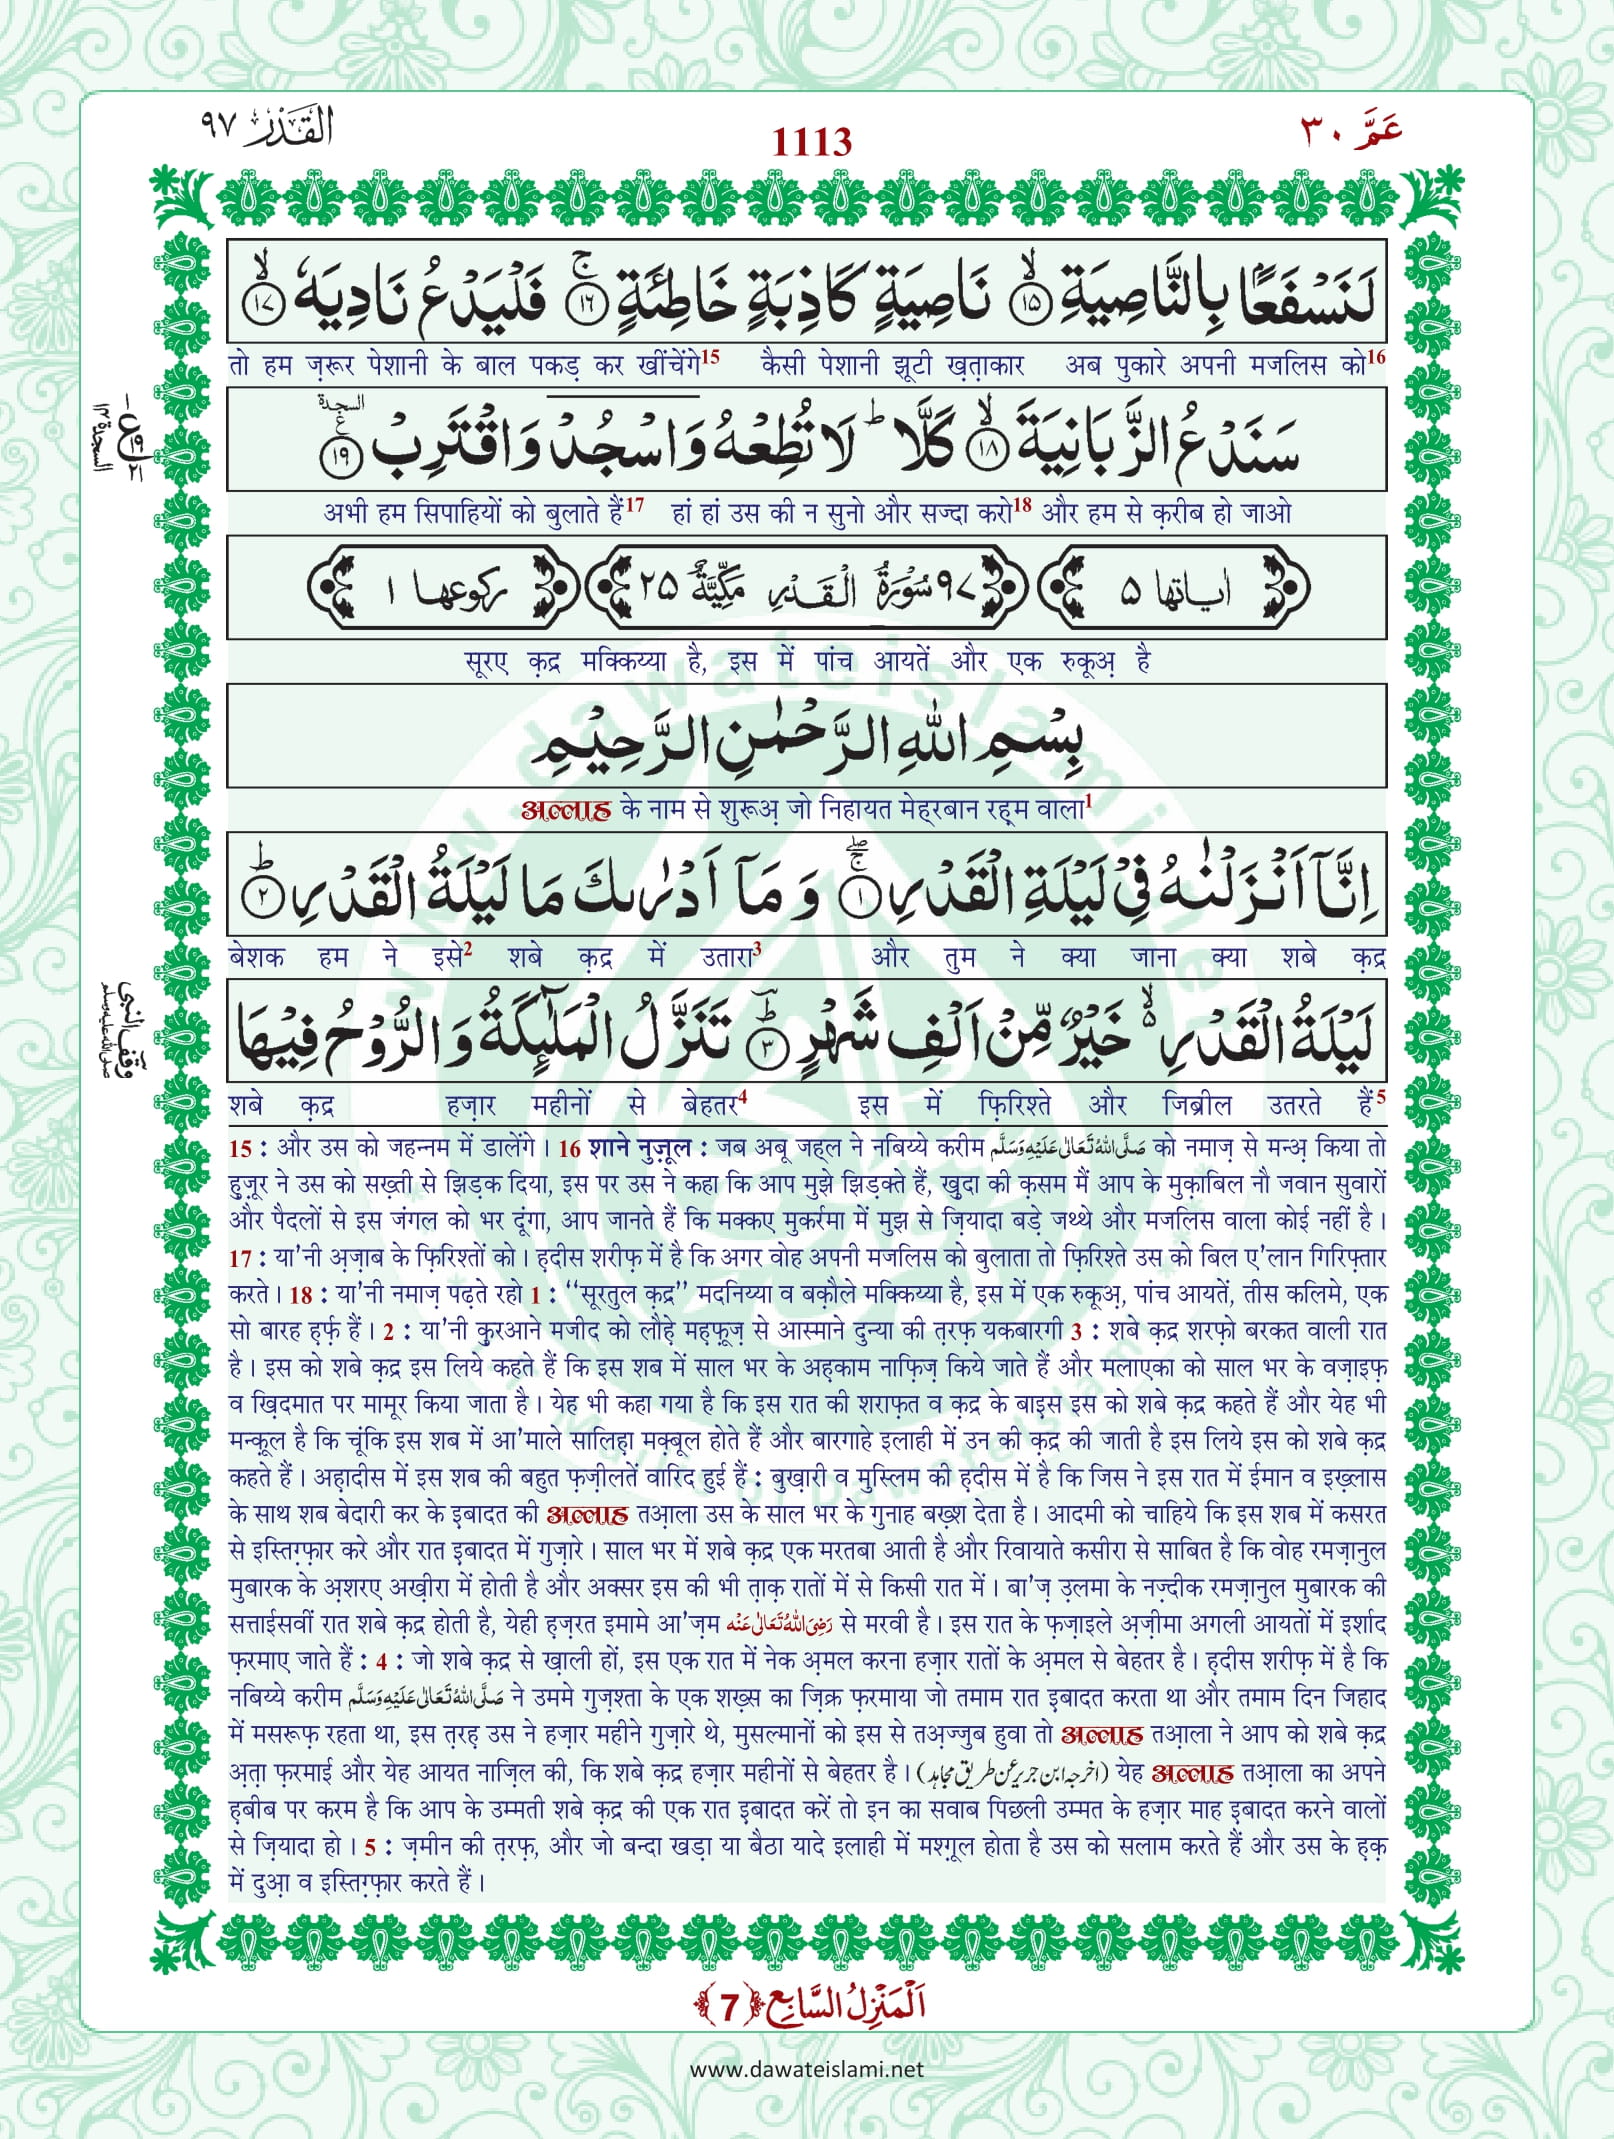 عَمَّ ٣٠
1113
القَدْر ٩٧
لَنَسْفَعًۢا بِالنَّاصِیَةِ ۙ﴿۱۵﴾ نَاصِیَةٍ كَاذِبَةٍ خَاطِئَةٍ ۚ﴿۱۶﴾ فَلْیَدْعُ نَادِیَهٗ ۙ﴿۱۷﴾
तो हम ज़रूर पेशानी के बाल पकड़ कर खींचेंगे15 कैसी पेशानी झूटी ख़त़ाकार अब पुकारे अपनी मजलिस को16
سَنَدْعُ الزَّبَانِیَةَ ۙ﴿۱۸﴾ كَلَّا ؕ لَا تُطِعْهُ وَ اسْجُدْ وَ اقْتَرِبْ ﴿۱۹﴾
السجدة
अभी हम सिपाहियों को बुलाते हैं17 हां हां उस की न सुनो और सज्दा करो18 और हम से क़रीब हो जाओ
اٰیاتها ٥ ٩٧ سُوْرَةُ الْقَدْرِ مَكِّیَّةٌ ٢٥ ركوعها ١
सूरए क़द्र मक्किय्या है, इस में पांच आयतें और एक रुकूअ़ है
بِسْمِ اللهِ الرَّحْمٰنِ الرَّحِیْمِ
अल्लाह के नाम से शुरूअ़ जो निहायत मेह्‌रबान रह़्म वाला1
اِنَّاۤ اَنْزَلْنٰهُ فِیْ لَیْلَةِ الْقَدْرِ ۚۖ﴿۱﴾ وَ مَاۤ اَدْرٰىكَ مَا لَیْلَةُ الْقَدْرِ ؕ﴿۲﴾
बेशक हम ने इसे2 शबे क़द्र में उतारा3 और तुम ने क्या जाना क्या शबे क़द्र
لَیْلَةُ الْقَدْرِ ۙ۬ خَیْرٌ مِّنْ اَلْفِ شَهْرٍ ؕؔ﴿۳﴾ تَنَزَّلُ الْمَلٰٓىِٕكَةُ وَ الرُّوْحُ فِیْهَا
وقف النبی صلی الله علیه وسلم
शबे क़द्र हज़ार महीनों से बेहतर4 इस में फ़िरिश्ते और जिब्रील उतरते हैं5
15 : और उस को जहन्नम में डालेंगे। 16 शाने नुज़ूल : जब अबू जह्ल ने नबिय्ये करीम صَلَّى اللهُ تَعَالٰى عَلَيْهِ وَسَلَّم को नमाज़ से मन्अ़ किया तो
हुज़ूर ने उस को सख़्ती से झिड़क दिया, इस पर उस ने कहा कि आप मुझे झिड़क्ते हैं, खुदा की क़सम मैं आप के मुक़ाबिल नौ जवान सुवारों
और पैदलों से इस जंगल को भर दूंगा, आप जानते हैं कि मक्कए मुकर्रमा में मुझ से ज़ियादा बड़े जथ्थे और मजलिस वाला कोई नहीं है।
17 : या'नी अ़ज़ाब के फ़िरिश्तों को। ह़दीस शरीफ़ में है कि अगर वोह अपनी मजलिस को बुलाता तो फ़िरिश्ते उस को बिल ए'लान गिरिफ़्तार
करते। 18 : या'नी नमाज़ पढ़ते रहो 1 : ‘‘सूरतुल क़द्र’’ मदनिय्या व बक़ौले मक्किय्या है, इस में एक रुकूअ़, पांच आयतें, तीस कलिमे, एक
सो बारह ह़र्फ़ हैं। 2 : या'नी कुरआने मजीद को लौह़े मह़फ़ूज़ से आस्माने दुन्या की त़रफ़ यकबारगी 3 : शबे क़द्र शरफ़ो बरकत वाली रात
है। इस को शबे क़द्र इस लिये कहते हैं कि इस शब में साल भर के अह़काम नाफ़िज़ किये जाते हैं और मलाएका को साल भर के वज़ाइफ़
व ख़िदमात पर मामूर किया जाता है। येह भी कहा गया है कि इस रात की शराफ़त व क़द्र के बाइ़स इस को शबे क़द्र कहते हैं और येह भी
मन्क़ूल है कि चूंकि इस शब में आ'माले सालिह़ा मक़्बूल होते हैं और बारगाहे इलाही में उन की क़द्र की जाती है इस लिये इस को शबे क़द्र
कहते हैं। अह़ादीस में इस शब की बहुत फ़ज़ीलतें वारिद हुई हैं : बुख़ारी व मुस्लिम की ह़दीस में है कि जिस ने इस रात में ईमान व इख़्लास
के साथ शब बेदारी कर के इ़बादत की अल्लाह तआ़ला उस के साल भर के गुनाह बख़्श देता है। आदमी को चाहिये कि इस शब में कसरत
से इस्तिग़्फ़ार करे और रात इ़बादत में गुज़ारे। साल भर में शबे क़द्र एक मरतबा आती है और रिवायाते कसीरा से साबित है कि वोह रमज़ानुल
मुबारक के अ़शरए अख़ीरा में होती है और अक्सर इस की भी त़ाक़ रातों में से किसी रात में। बा'ज़ उ़लमा के नज़्दीक रमज़ानुल मुबारक की
सत्ताईसवीं रात शबे क़द्र होती है, येही ह़ज़रत इमामे आ'ज़म رَضِىَ اللهُ تَعَالٰى عَنْه से मरवी है। इस रात के फ़ज़ाइले अ़ज़ीमा अगली आयतों में इर्शाद
फ़रमाए जाते हैं : 4 : जो शबे क़द्र से ख़ाली हों, इस एक रात में नेक अ़मल करना हज़ार रातों के अ़मल से बेहतर है। ह़दीस शरीफ़ में है कि
नबिय्ये करीम صَلَّى اللهُ تَعَالٰى عَلَيْهِ وَسَلَّم ने उममे गुज़श्ता के एक शख़्स का ज़िक्र फ़रमाया जो तमाम रात इ़बादत करता था और तमाम दिन जिहाद
में मसरूफ़ रहता था, इस त़रह़ उस ने हज़ार महीने गुज़ारे थे, मुसल्मानों को इस से तअ़ज्जुब हुवा तो अल्लाह तआ़ला ने आप को शबे क़द्र
अ़त़ा फ़रमाई और येह आयत नाज़िल की, कि शबे क़द्र हज़ार महीनों से बेहतर है। (اخرجه ابن جرير عن طريق مجاهد) येह अल्लाह तआ़ला का अपने
ह़बीब पर करम है कि आप के उम्मती शबे क़द्र की एक रात इ़बादत करें तो इन का सवाब पिछली उम्मत के हज़ार माह इ़बादत करने वालों
से ज़ियादा हो। 5 : ज़मीन की त़रफ़, और जो बन्दा खड़ा या बैठा यादे इलाही में मश्ग़ूल होता है उस को सलाम करते हैं और उस के ह़क़
में दुआ़ व इस्तिग़्फ़ार करते हैं।
اَلْمَنْزِلُ السَّابِع ﴿7﴾
www.dawateislami.net